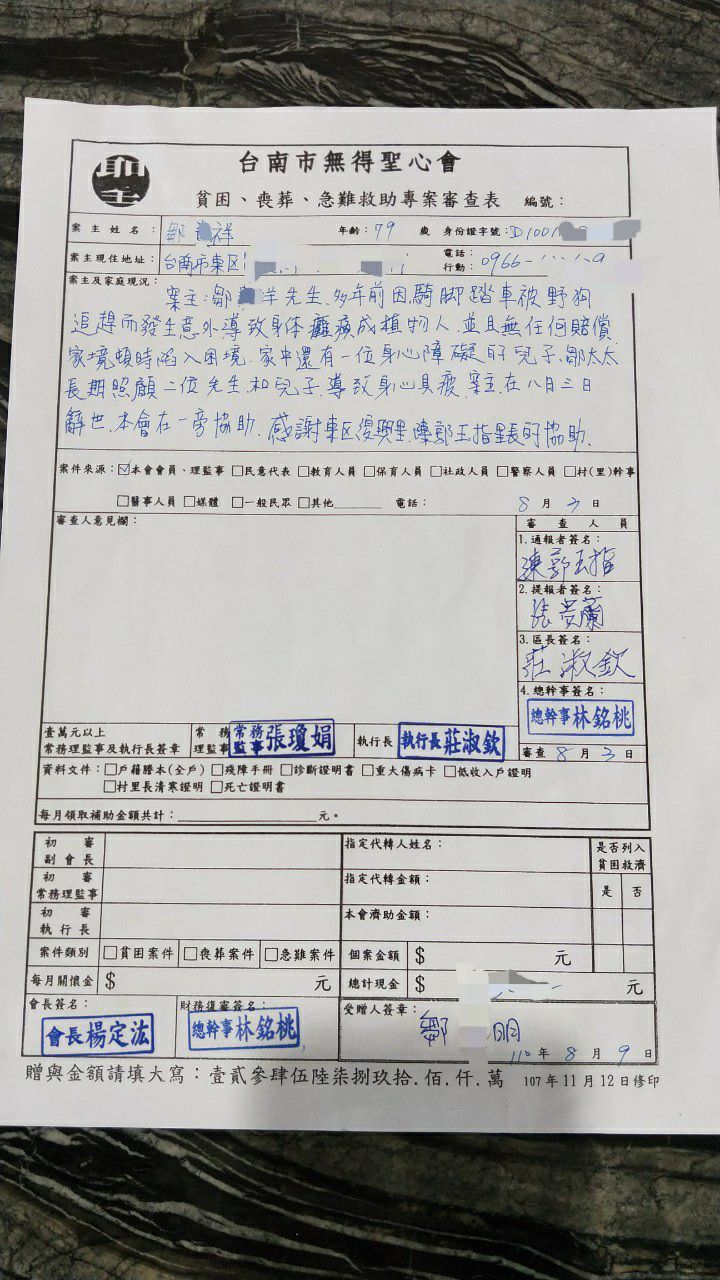 台南市無得聖心會
貧困、喪葬、急難救助專案審查表 編號：
案主姓名： 鄒 祥 年齡：79 歲 身份證字號：D1001
案主現住地址： 台南市東區 電話： 行動： 0966- 9
案主及家庭現況： 案主：鄒 祥先生.多年前因騎脚踏車被野狗
追趕而發生意外導致身体癱瘓成植物人.並且無任何賠償
家境頓時陷入困境.家中還有一位身心障礙的兒子.鄒太太
長期照顧二位先生和兒子.導致身心具疲.案主.在八月三日
辭世.本會在一旁協助.感謝東区復興里.陳郭玉指里長的協助.
案件來源：☑本會會員、理監事 □民意代表 □教育人員 □保育人員 □社政人員 □警察人員 □村(里)幹事
□醫事人員 □媒體 □一般民眾 □其他 電話： 8 月 3 日
審查人意見欄：
審查人員
1.通報者簽名：
陳郭玉指
2.提報者簽名：
張貴蘭
3.區長簽名：
莊淑欽
4.總幹事簽名：
總幹事林銘桃
壹萬元以上
常務理監事及執行長簽章
常務理監事： 常務監事張瓊娟 執行長 執行長莊淑欽 審查 8 月 3 日
資料文件：□戶籍謄本(全戶) □殘障手冊 □診斷證明書 □重大傷病卡 □低收入戶證明
□村里長清寒證明 □死亡證明書
每月領取補助金額共計： 元。
初審副會長
初審常務理監事
初審執行長
指定代轉人姓名：
指定代轉金額：
本會濟助金額：
是否列入貧困救濟
是 否
案件類別 □貧困案件 □喪葬案件 □急難案件 個案金額 $ 元
每月關懷金 $ 元 總計現金 $ 元
會長簽名： 會長楊定汯
財務復審簽名： 總幹事林銘桃
受贈人簽章： 鄒 明
110年 8 月 9 日
贈與金額請填大寫：壹貳參肆伍陸柒捌玖拾.佰.仟.萬 107年11月12日修印